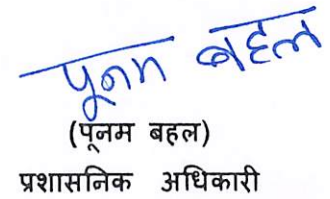 पूनम बहल
(पूनम बहल)
प्रशासनिक अधिकारी